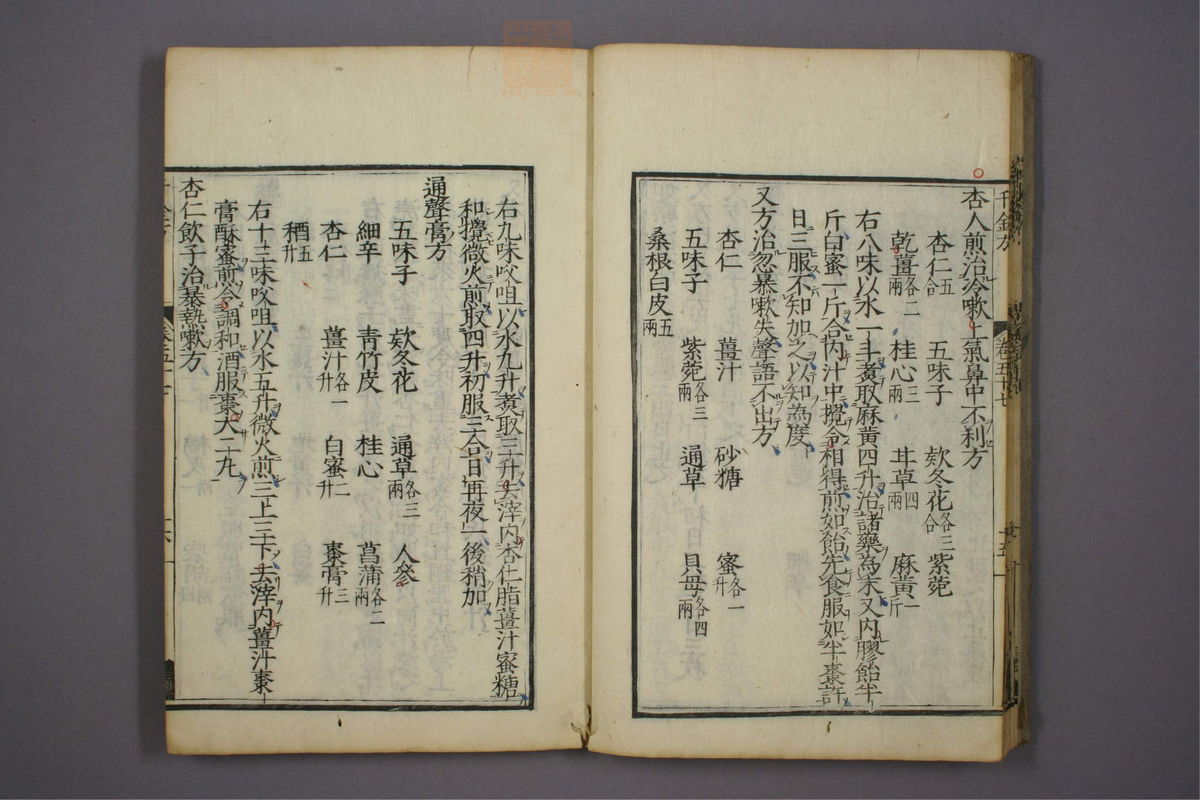 杏人煎治冷嗽上氣鼻中不利方
杏仁五合 五味子 欵冬花各三合 紫菀
乾薑各二兩 桂心三兩 甘草四兩 麻黃一斤
右八味以水一斗煮取麻黃四升治諸藥為末又内膠飴半
斤白蜜一斤合内汁中攪令相得煎如飴先食服如半棗許
日三服不知加之以知為度
又方治忽暴嗽失聲語不出方
杏仁 薑汁 砂糖 蜜各一升
五味子 紫菀各三兩 通草 貝母各四兩
桑根白皮五兩
右九味㕮咀以水九升煮取三升去滓内杏仁脂薑汁蜜糖
和攪微火煎取四升初服三合日再夜一後稍加
通聲膏方
五味子 欵冬花 通草各三兩 人參
細辛 青竹皮 桂心 菖蒲各二兩
杏仁 薑汁各一升 白蜜二升 棗膏三升
酒五升
右十三味㕮咀以水五升微火煎三上三下去滓内薑汁棗
膏酥蜜煎令調和酒服棗大二丸
杏仁飲子治暴熱嗽方